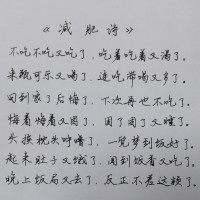 《减肥诗》
不吃不吃又吃了，吃着吃着又渴了。
来瓶可乐又喝了，连吃带喝又多了。
回到家了后悔了，下次再也不吃了。
悔着悔着又困了，困了困了又睡了。
头挨枕头呼噜了，一觉梦到饭好了。
起来肚子又饿了，闻到饭香又吃了。
晚上饭局又去了，反正不差这顿了。